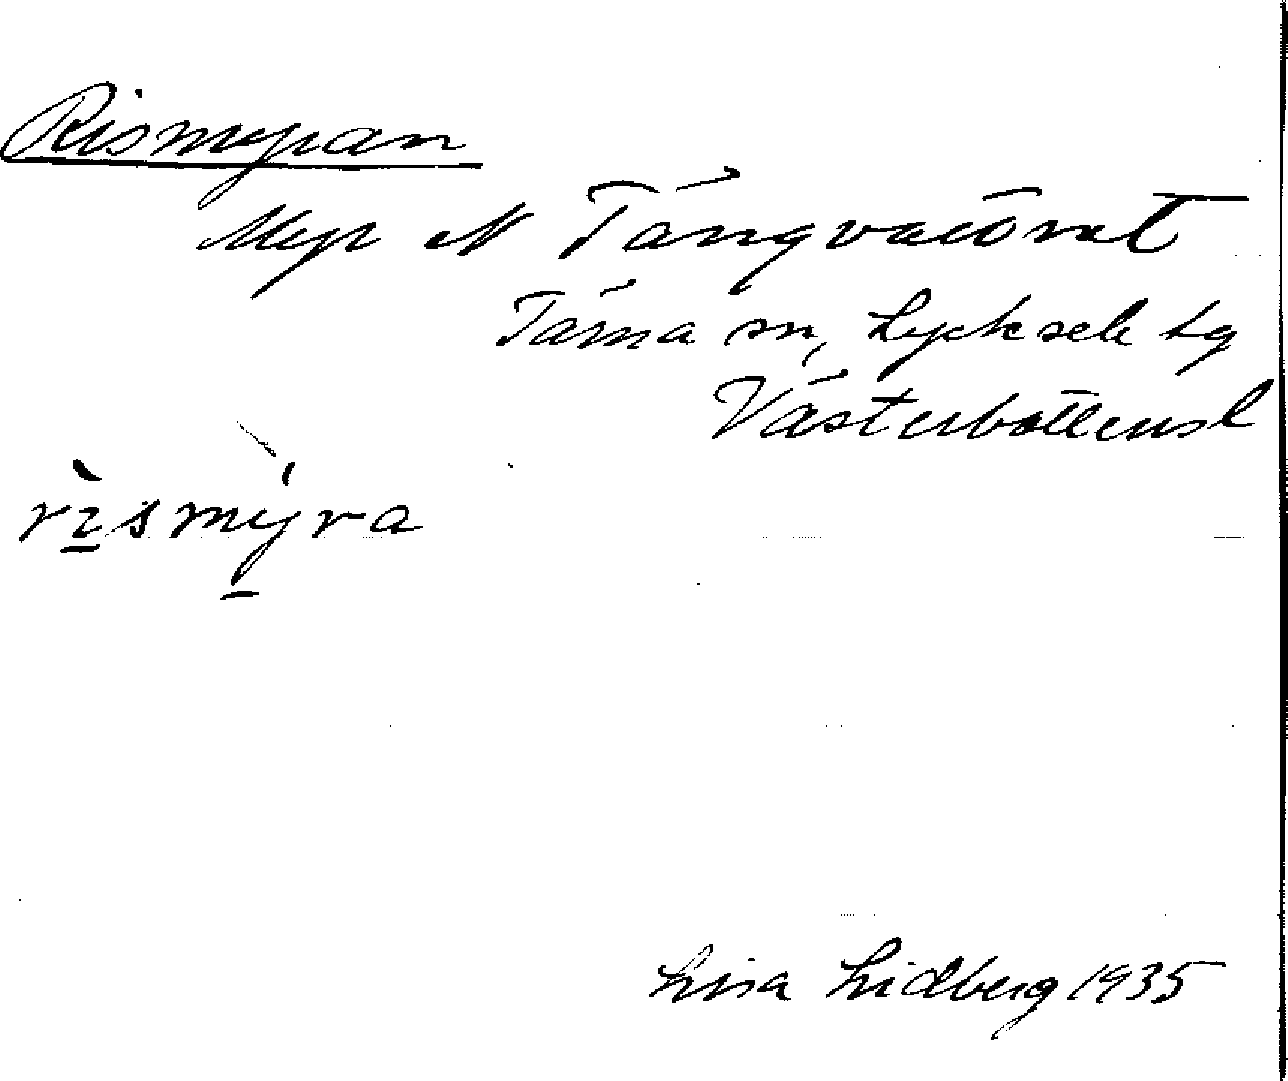 Rismyran
Myr N Tängvattnet
Tärna sn, Lycksele lg
Västerbottensl
rìsmýra
Lisa Lidberg 1935